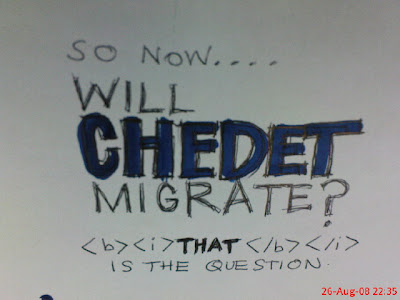 SO NOW....
WILL
CHEDET
MIGRATE?
<b><i>THAT</b></i>
IS THE QUESTION.
26-Aug-08 22:35